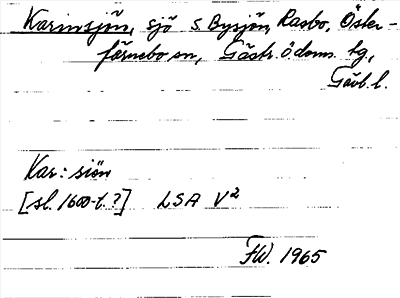 Karinsjön, sjö S Bysjön, Rasbo, Öster-
färnebo sn, Gästr. ö doms. tg,
Gävl. l.
Kar: siön
[sl. 1600-t.?] LSA V²
FW. 1965